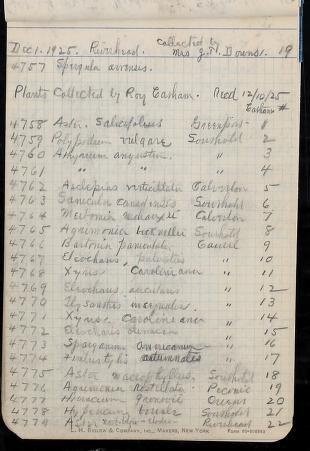 Dec 1. 1925. Riverhead. Collected by Mrs. J. H. Downs. 19
4757 Spergula arvensis.
Plants Collected by Roy Latham. Recd 12/10/25
Latham #
4758 Aster Salicifolius Greenport 1
4759 Polypodium vulgare Southold 2
4760 Athyrium angustum " 3
4761 " " " 4
4762 Asclepias verticillata Calverton 5
4763 Sanicula canadensis Southold 6
4764 Calverton 7
4765 Agrimonia Southold 8
4766 Bartonia paniculata Laurel 9
4767 Eleocharis palustris " 10
4768 Xyris Caroliniana " 11
4769 Eleocharis acicularis " 12
4770 " 13
4771 Xyris Caroliniana " 14
4772 Eleocharis " 15
4773 Sparganium americanum " 16
4774 Fimbristylis autumnalis " 17
4775 Aster macrophyllus. Southold 18
4776 Agrimonia Peconic 19
4777 Orient 20
4778 Southold 21
4779 Aster Riverhead 22
& COMPANY, INC., MAKERS, NEW YORK